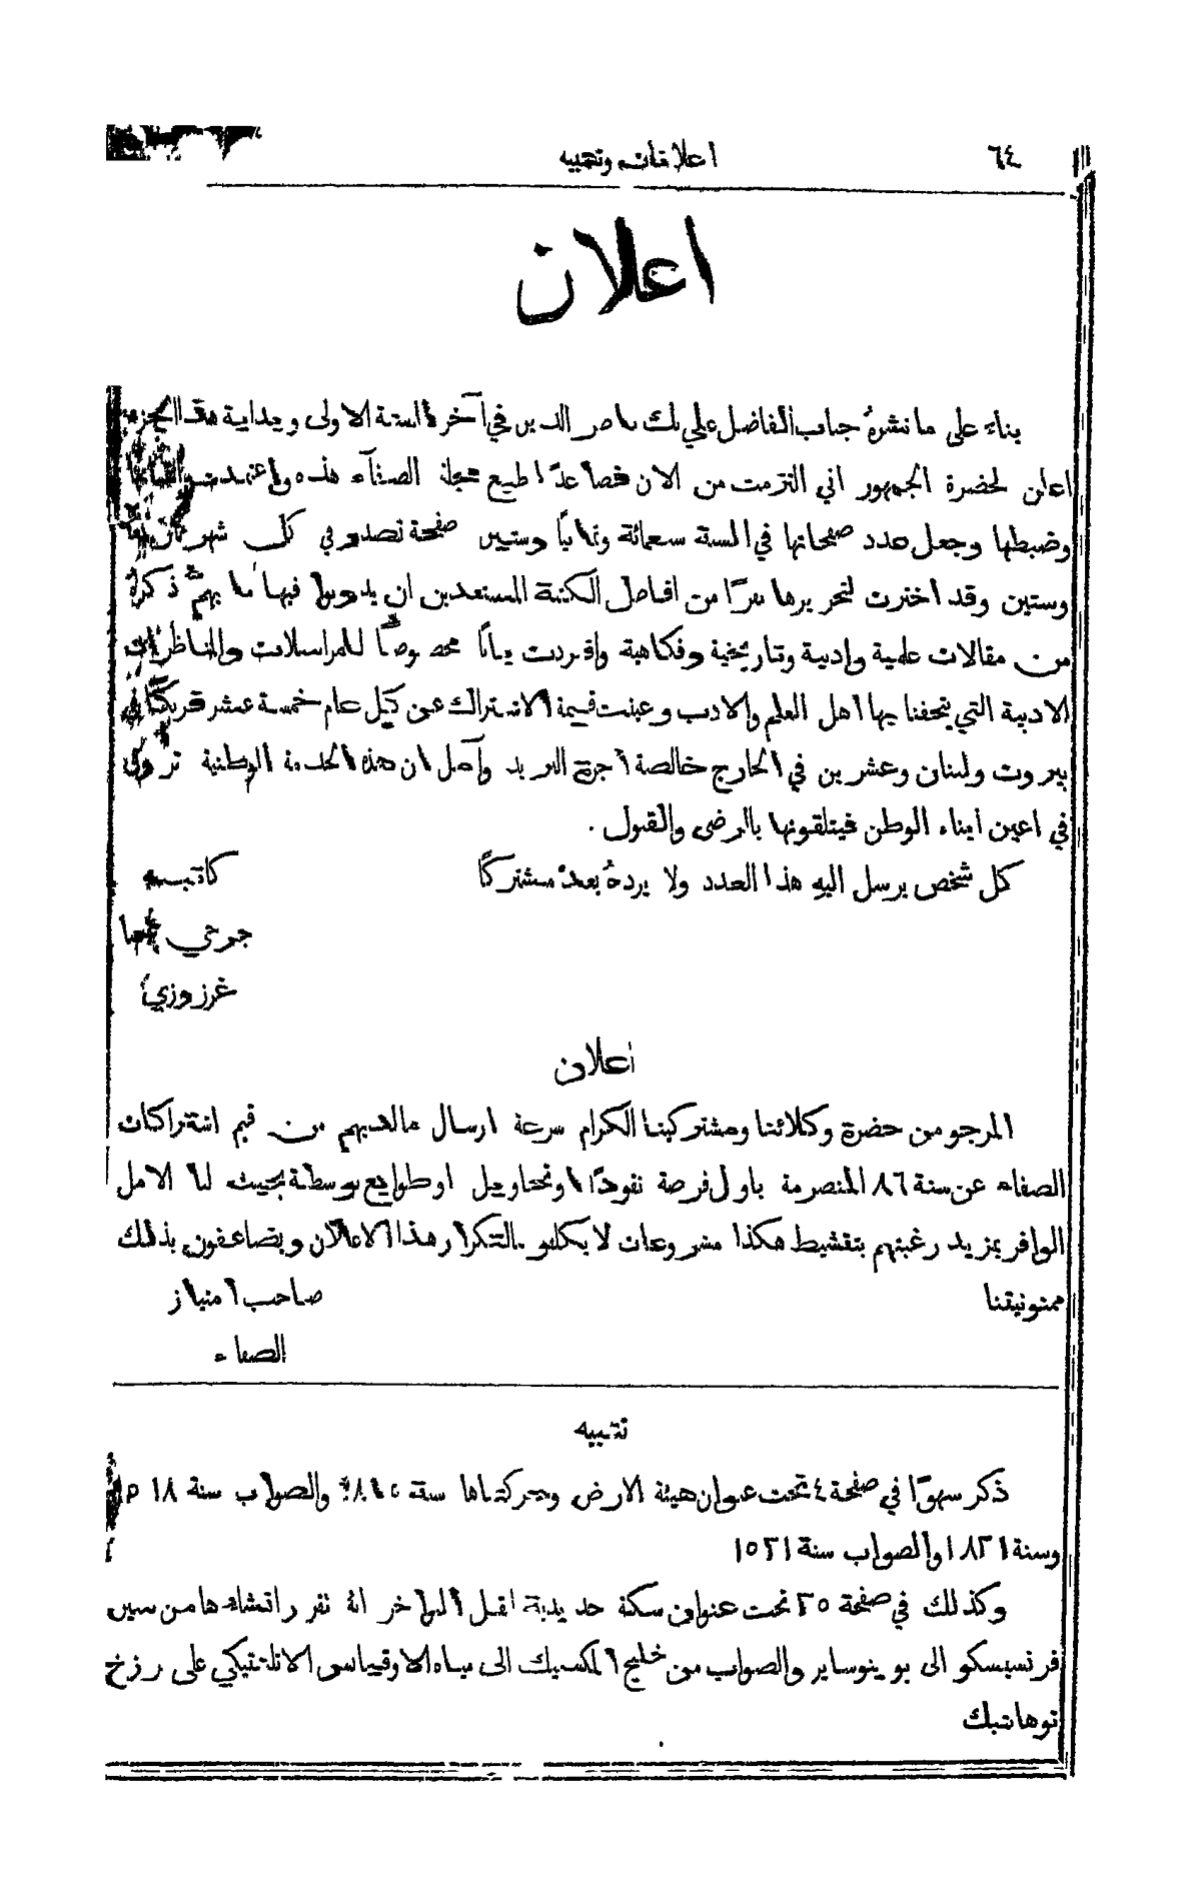 ٦٤
اعلانات وتنبيه
اعلان
بناء على ما نشرهُ جناب الفاضل علي بك ناصر الدين في آخر السنة الاولى وبداية هذا الجزء
اعلن لحضرة الجمهور اني التزمت من الان فصاعدًا طبع مجلة الصفآء هذه واعتمدت
وضبطها وجعل عدد صفحاتها في السنة سبعمائة وثمانيًا وستين صفحة تصدر في كل شهر
وستين وقد اخترت لتحريرها نفرًا من افاضل الكتبة المستعدين ان يدرجوا فيها ما يهمّ ذكرهُ
من مقالات علمية وادبية وتاريخية وفكاهية وافردت بابًا مخصوصًا للمراسلات والمناظرات
الادبية التي يتحفنا بها اهل العلم والادب وعينت قيمة الاشتراك عن كل عام خمسة عشر فرنكًا في
بيروت ولبنان وعشرين في الخارج خالصة اجرة البريد وآمل ان هذه الخدمة الوطنية تروق
في اعين ابناء الوطن فيتلقونها بالرضى والقبول .
كل شخص يرسل اليهِ هذا العدد ولا يردهُ يعدّ مشتركًا
كاتبـــه
جرجي
غرزوزي
اعلان
المرجو من حضرة وكلائنا ومشتركينا الكرام سرعة ارسال ما لديهم من قيم اشتراكات
الصفاء عن سنة ٨٦ المنصرمة باول فرصة نقودًا او تحاويل او طوابع بوسطة بحيث لنا الامل
الوافر بمزيد رغبتهم بتنشيط هكذا مشروعات لا يكلفونا لتكرار هذا الاعلان ويضاعفون بذلك
ممنونيتنا
صاحب امتياز
الصفاء
تنبيه
ذكر سهوًا في صفحة ٤ تحت عنوان هيئة الارض وحركتها سنة والصواب سنة
وسنة ١٨٢١ والصواب سنة ١٥٢١
وكذلك في صفحة ٢٥ تحت عنوان سكة حديدية لنقل البواخر انهُ تقرر انشاءها من سين
فرنسيسكو الى بوينوساير والصواب من خليج المكسيك الى مياه الاوقيانس الاتلنتيكي على برزخ
توهانتبك